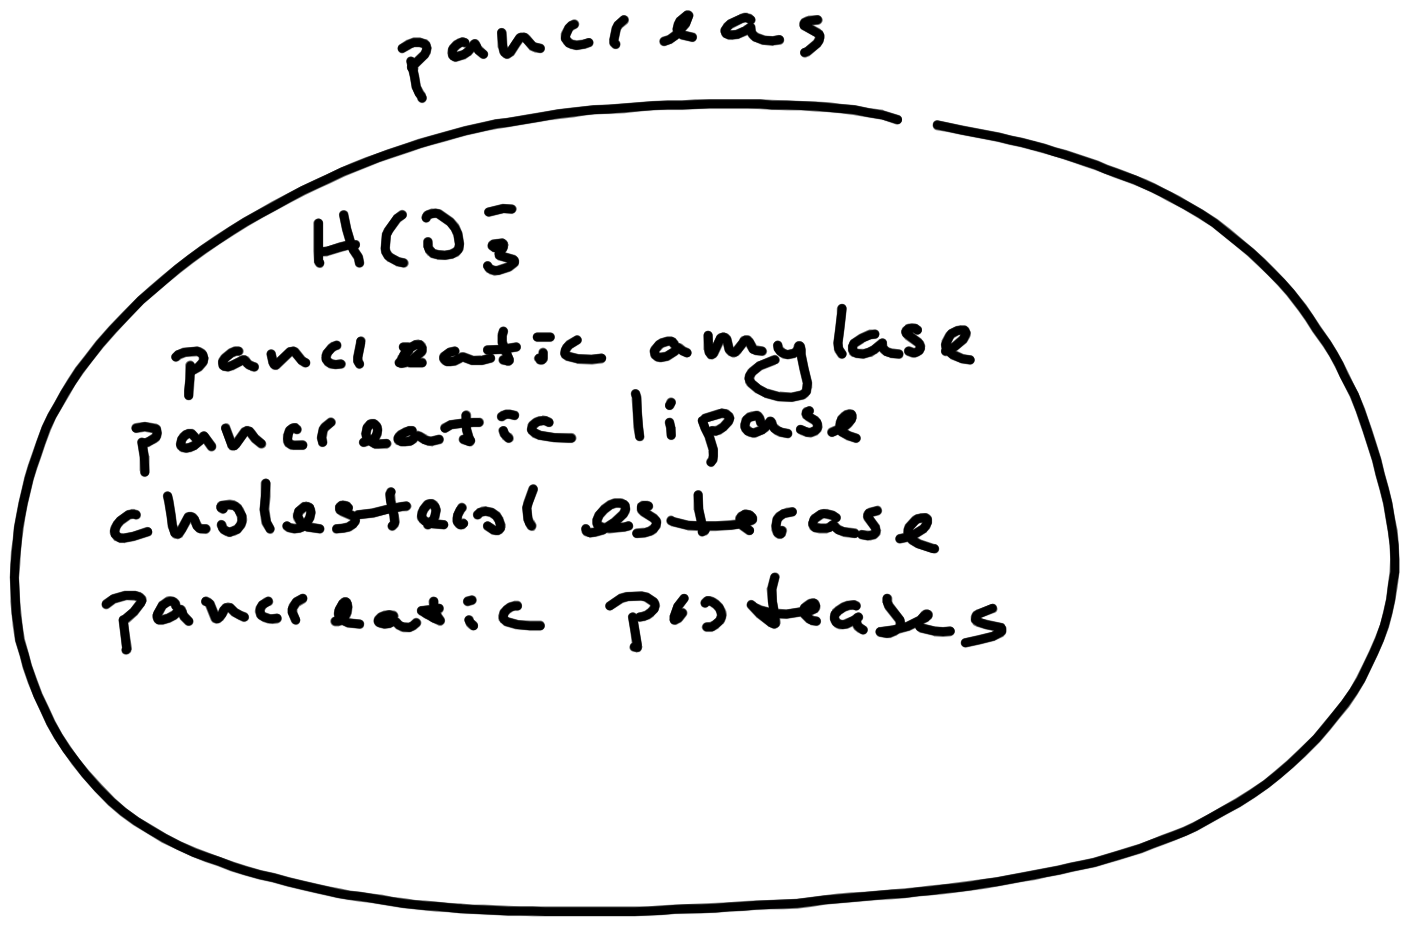 pancreas
HCO₃⁻
pancreatic amylase
pancreatic lipase
cholesterol esterase
pancreatic proteases